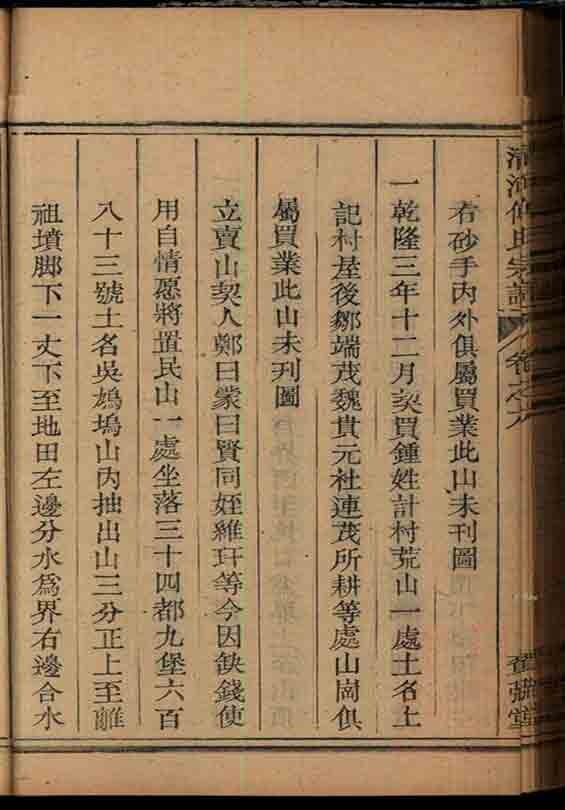 清河傅氏宗譜 卷之八
右砂手內外俱屬買業此山未刊圖
一乾隆三年十二月契買鍾姓計村荒山一處土名上
記村屋後鄒端茂魏貴元社連茂所耕等處山崗俱
屬買業此山未刊圖
立賣山契人鄭曰蒙曰賢同姪維玕等今因缺錢使
用自情愿將置民山一處坐落三十四都九堡六百
八十三號土名吳鴆塢山內抽出山三分正上至離
祖墳脚下一丈下至地田左邊分水為界右邊合水